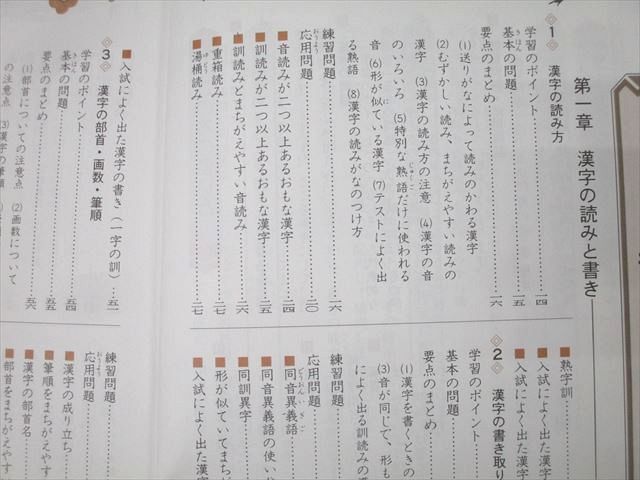 第一章 漢字の読みと書き
1 漢字の読み方
学習のポイント……一四
基本の問題……一五
要点のまとめ……一六
(1)送りがなによって読みのかわる漢字
(2)むずかしい読み、まちがえやすい読みの
漢字 (3)漢字の読み方の注意 (4)漢字の音
のいろいろ (5)特別な熟語だけに使われる
音 (6)形が似ている漢字 (7)テストによく出
る熟語 (8)漢字の読みがなのつけ方
練習問題……一六
応用問題……二〇
■音読みが二つ以上あるおもな漢字……二四
■訓読みが二つ以上あるおもな漢字……二五
■訓読みとまちがえやすい音読み……二六
■重箱読み……二七
■湯桶読み……二七
■熟字訓
■入試によく出た漢字
■入試によく出た漢字
2 漢字の書き取り
学習のポイント
基本の問題
要点のまとめ
(1)漢字を書くときの
(3)音が同じで、形も
によく出る訓読みの漢
練習問題
応用問題
■同音異義語
■同音異義語の使い
■同訓異字
■形が似ていてまち
■入試によく出た漢字
■入試によく出た漢字の書き(一字の訓)……五一
3 漢字の部首・画数・筆順
学習のポイント……五四
基本の問題……五六
要点のまとめ……五六
(1)部首についての注意点 (2)画数について
の注意点 (3)漢字の筆順
練習問題
応用問題
■漢字の成り立ち
■筆順をまちがえやす
■漢字の部首名
■部首をまちがえやす